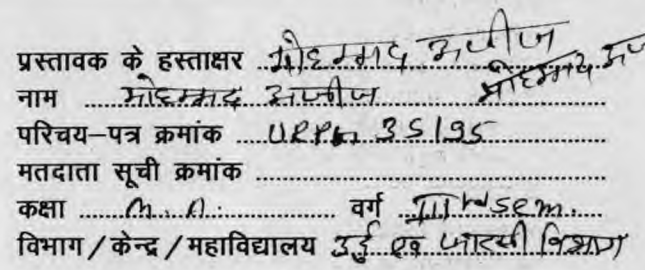 प्रस्तावक के हस्ताक्षर मोहम्मद अजीज
नाम मोहम्मद अजीज मोहम्मद
परिचय-पत्र क्रमांक 35/95
मतदाता सूची क्रमांक
कक्षा M.A. वर्ग IIIrd sem.
विभाग/केन्द्र/महाविद्यालय उर्दु एवं फारसी विभाग